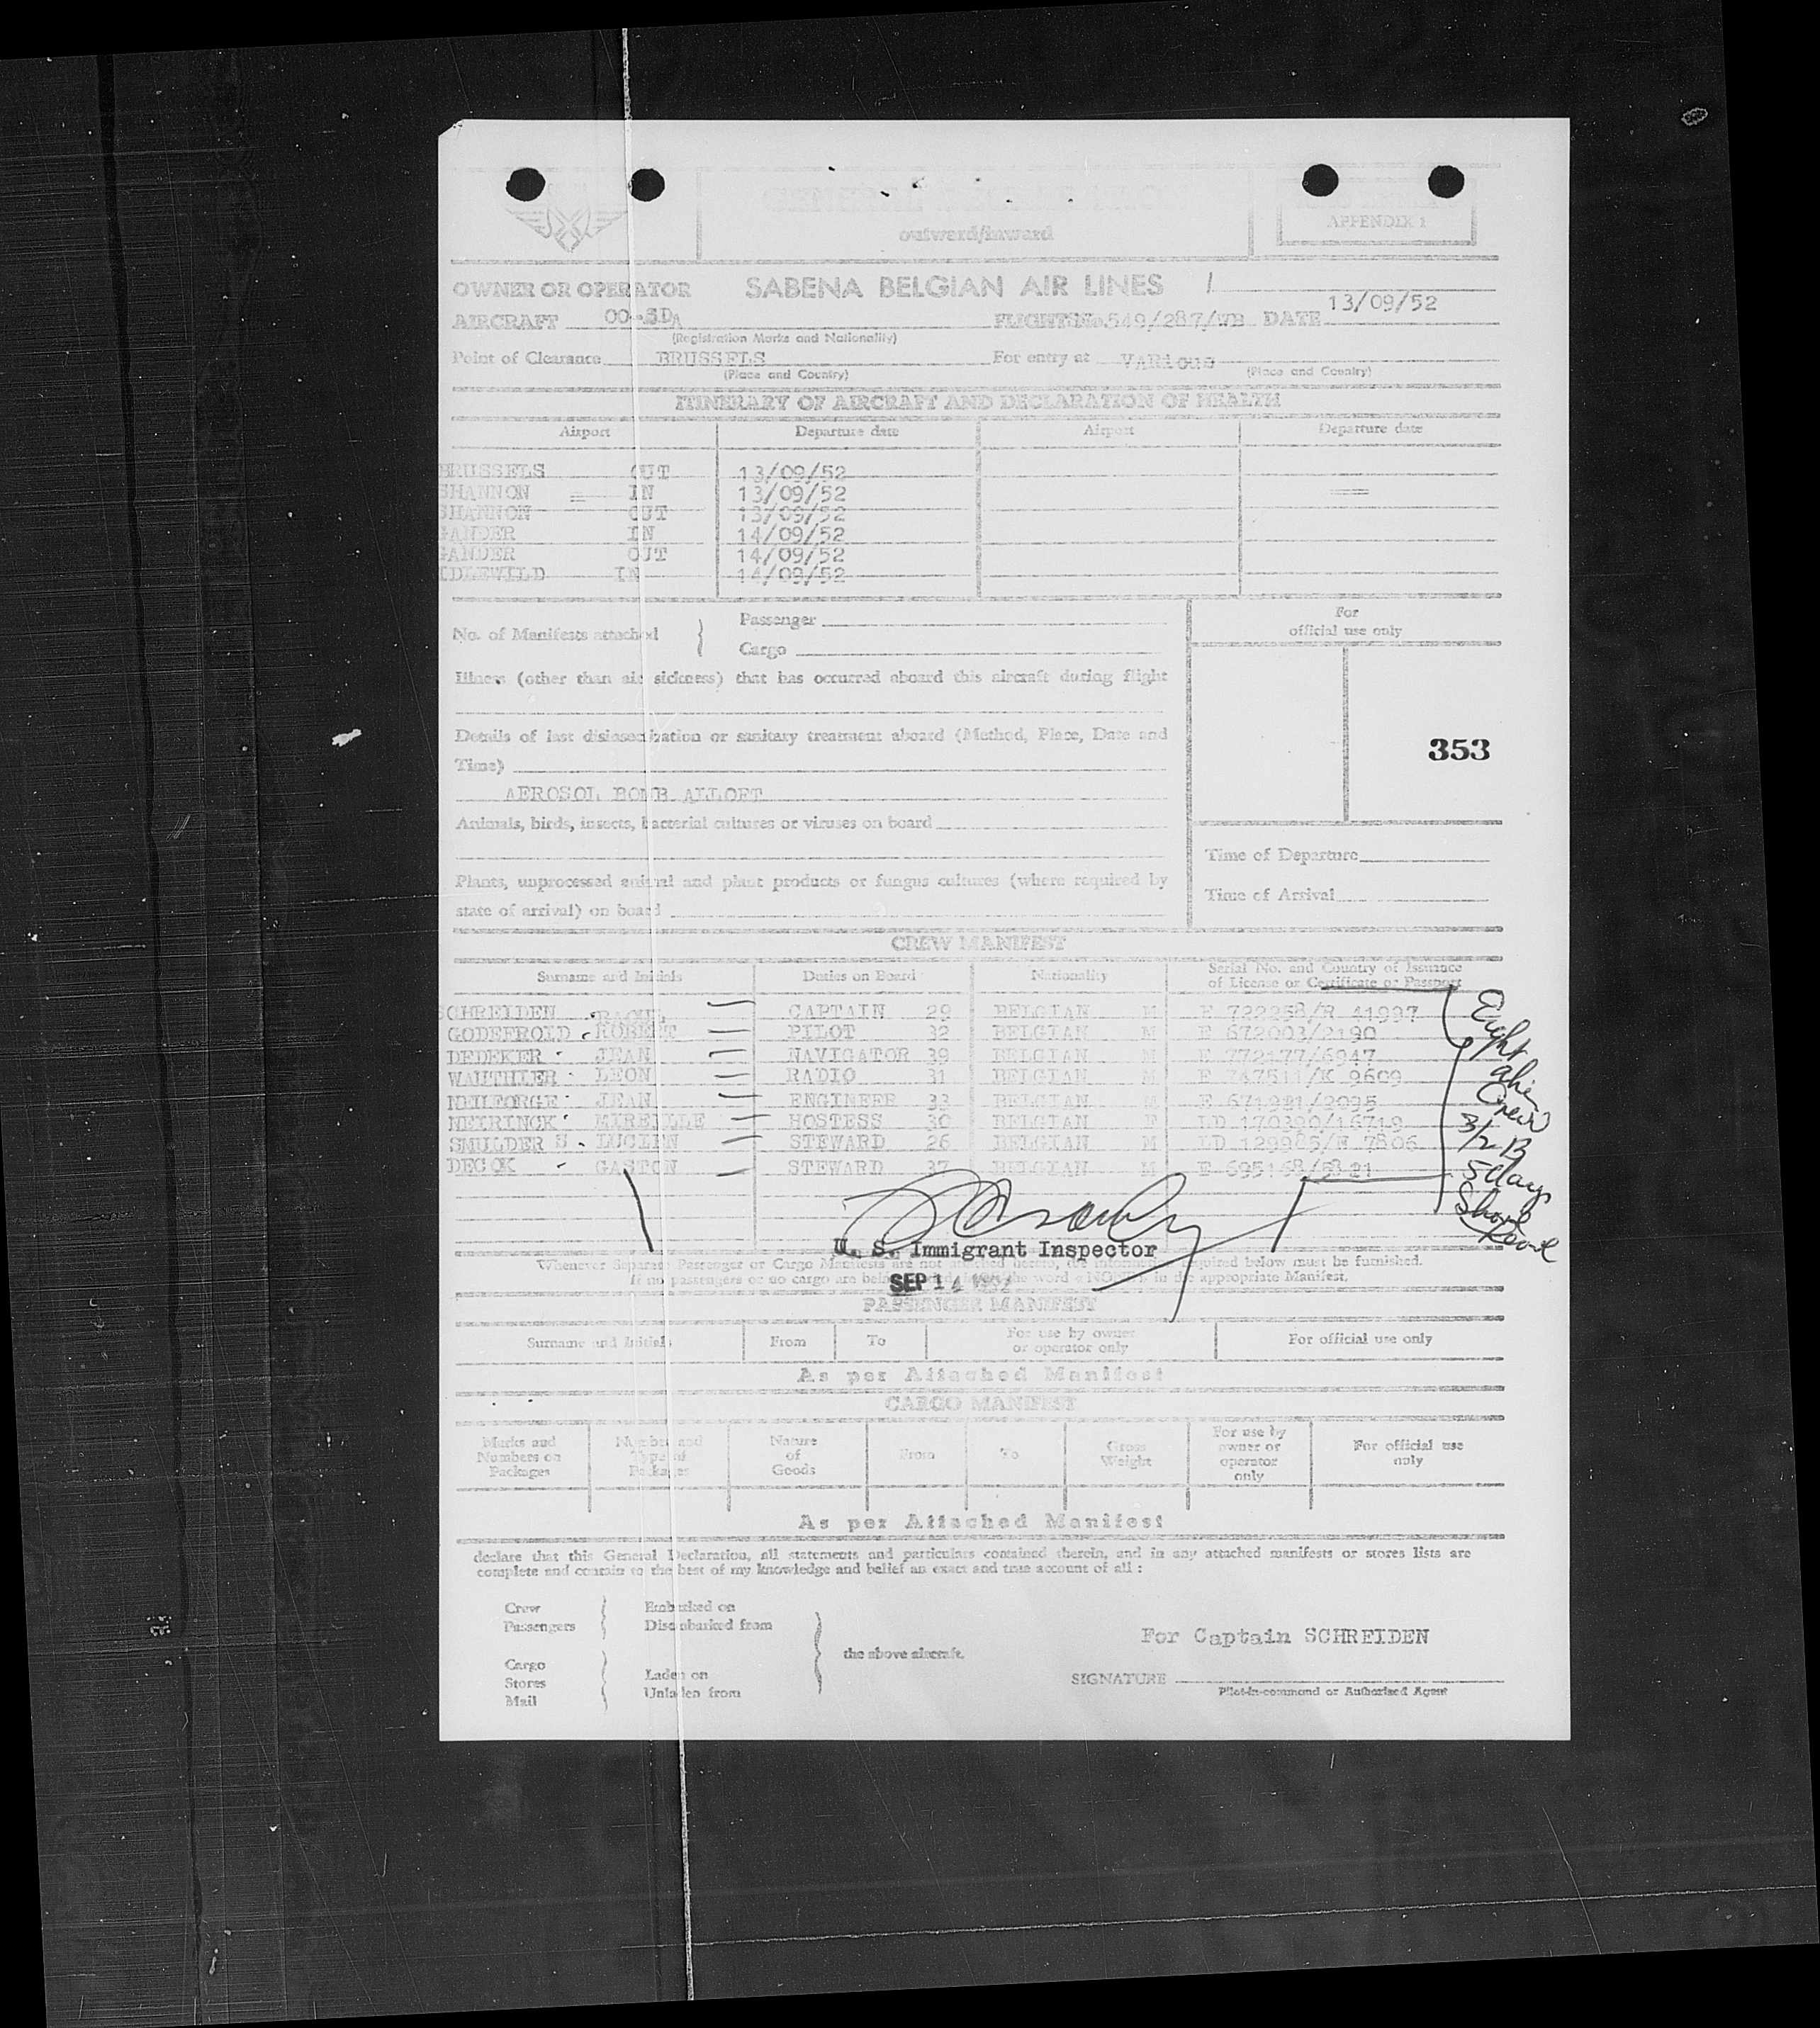 outward/inward
APPENDIX 1
OWNER OR OPERATOR SABENA BELGIAN AIR LINES
AIRCRAFT OO-SDA FLIGHT No. 549/287/WB DATE 13/09/52
(Registration Marks and Nationality)
Point of Clearance BRUSSELS For entry at VARIOUS
(Place and Country) (Place and Country)
ITINERARY OF AIRCRAFT AND DECLARATION OF HEALTH
Airport Departure date Airport Departure date
BRUSSELS OUT 13/09/52
SHANNON IN 13/09/52
SHANNON OUT 13/09/52
GANDER IN 14/09/52
GANDER OUT 14/09/52
IDLEWILD IN 14/09/52
No. of Manifests attached Passenger
Cargo
For
official use only
Illness (other than air sickness) that has occurred aboard this aircraft during flight
Details of last disinsectization or sanitary treatment aboard (Method, Place, Date and
Time)
353
AEROSOL BOMB ALLOFT
Animals, birds, insects, bacterial cultures or viruses on board
Time of Departure
Plants, unprocessed animal and plant products or fungus cultures (where required by
state of arrival) on board
Time of Arrival
CREW MANIFEST
Surname and Initials Duties on Board Nationality Serial No. and Country of Issuance
of License or Certificate or Passport
SCHREIDEN RAOUL CAPTAIN 29 BELGIAN M E 722258/R 41997
GODEFROID ROBERT PILOT 32 BELGIAN M E 672003/2190
DEDEKER JEAN NAVIGATOR 39 BELGIAN M E 772177/6947
WAUTHIER LEON RADIO 31 BELGIAN M E 747511/K 9609
NEILFORGE JEAN ENGINEER 33 BELGIAN M E 671921/2095
NEIRINCK MIREILLE HOSTESS 30 BELGIAN F LD 170390/16719
SMULDERS LUCIEN STEWARD 26 BELGIAN M LD 129985/E 7806
DECOK GASTON STEWARD 37 BELGIAN M E 695168/5821
Eight
Crew
3/2 B
5 days
Shore
Leave
U. S. Immigrant Inspector
Whenever Separate Passenger or Cargo Manifests are not attached hereto, the information required below must be furnished.
If no passengers or no cargo are being the word in the appropriate Manifest.
SEP 14 1952
PASSENGER MANIFEST
Surname and Initials From To For use by owner
or operator only For official use only
As per Attached Manifest
CARGO MANIFEST
Marks and
Numbers on
Packages
Number and
Type of
Packages
Nature
of
Goods
From
To
Gross
Weight
For use by
owner or
operator
only
For official use
only
As per Attached Manifest
declare that this General Declaration, all statements and particulars contained therein, and in any attached manifests or stores lists are
complete and contain to the best of my knowledge and belief an exact and true account of all :
Crew Embarked on
Passengers Disembarked from
the above aircraft.
Cargo
Stores Laden on
Mail Unladen from
For Captain SCHREIDEN
SIGNATURE
Pilot-in-command or Authorized Agent